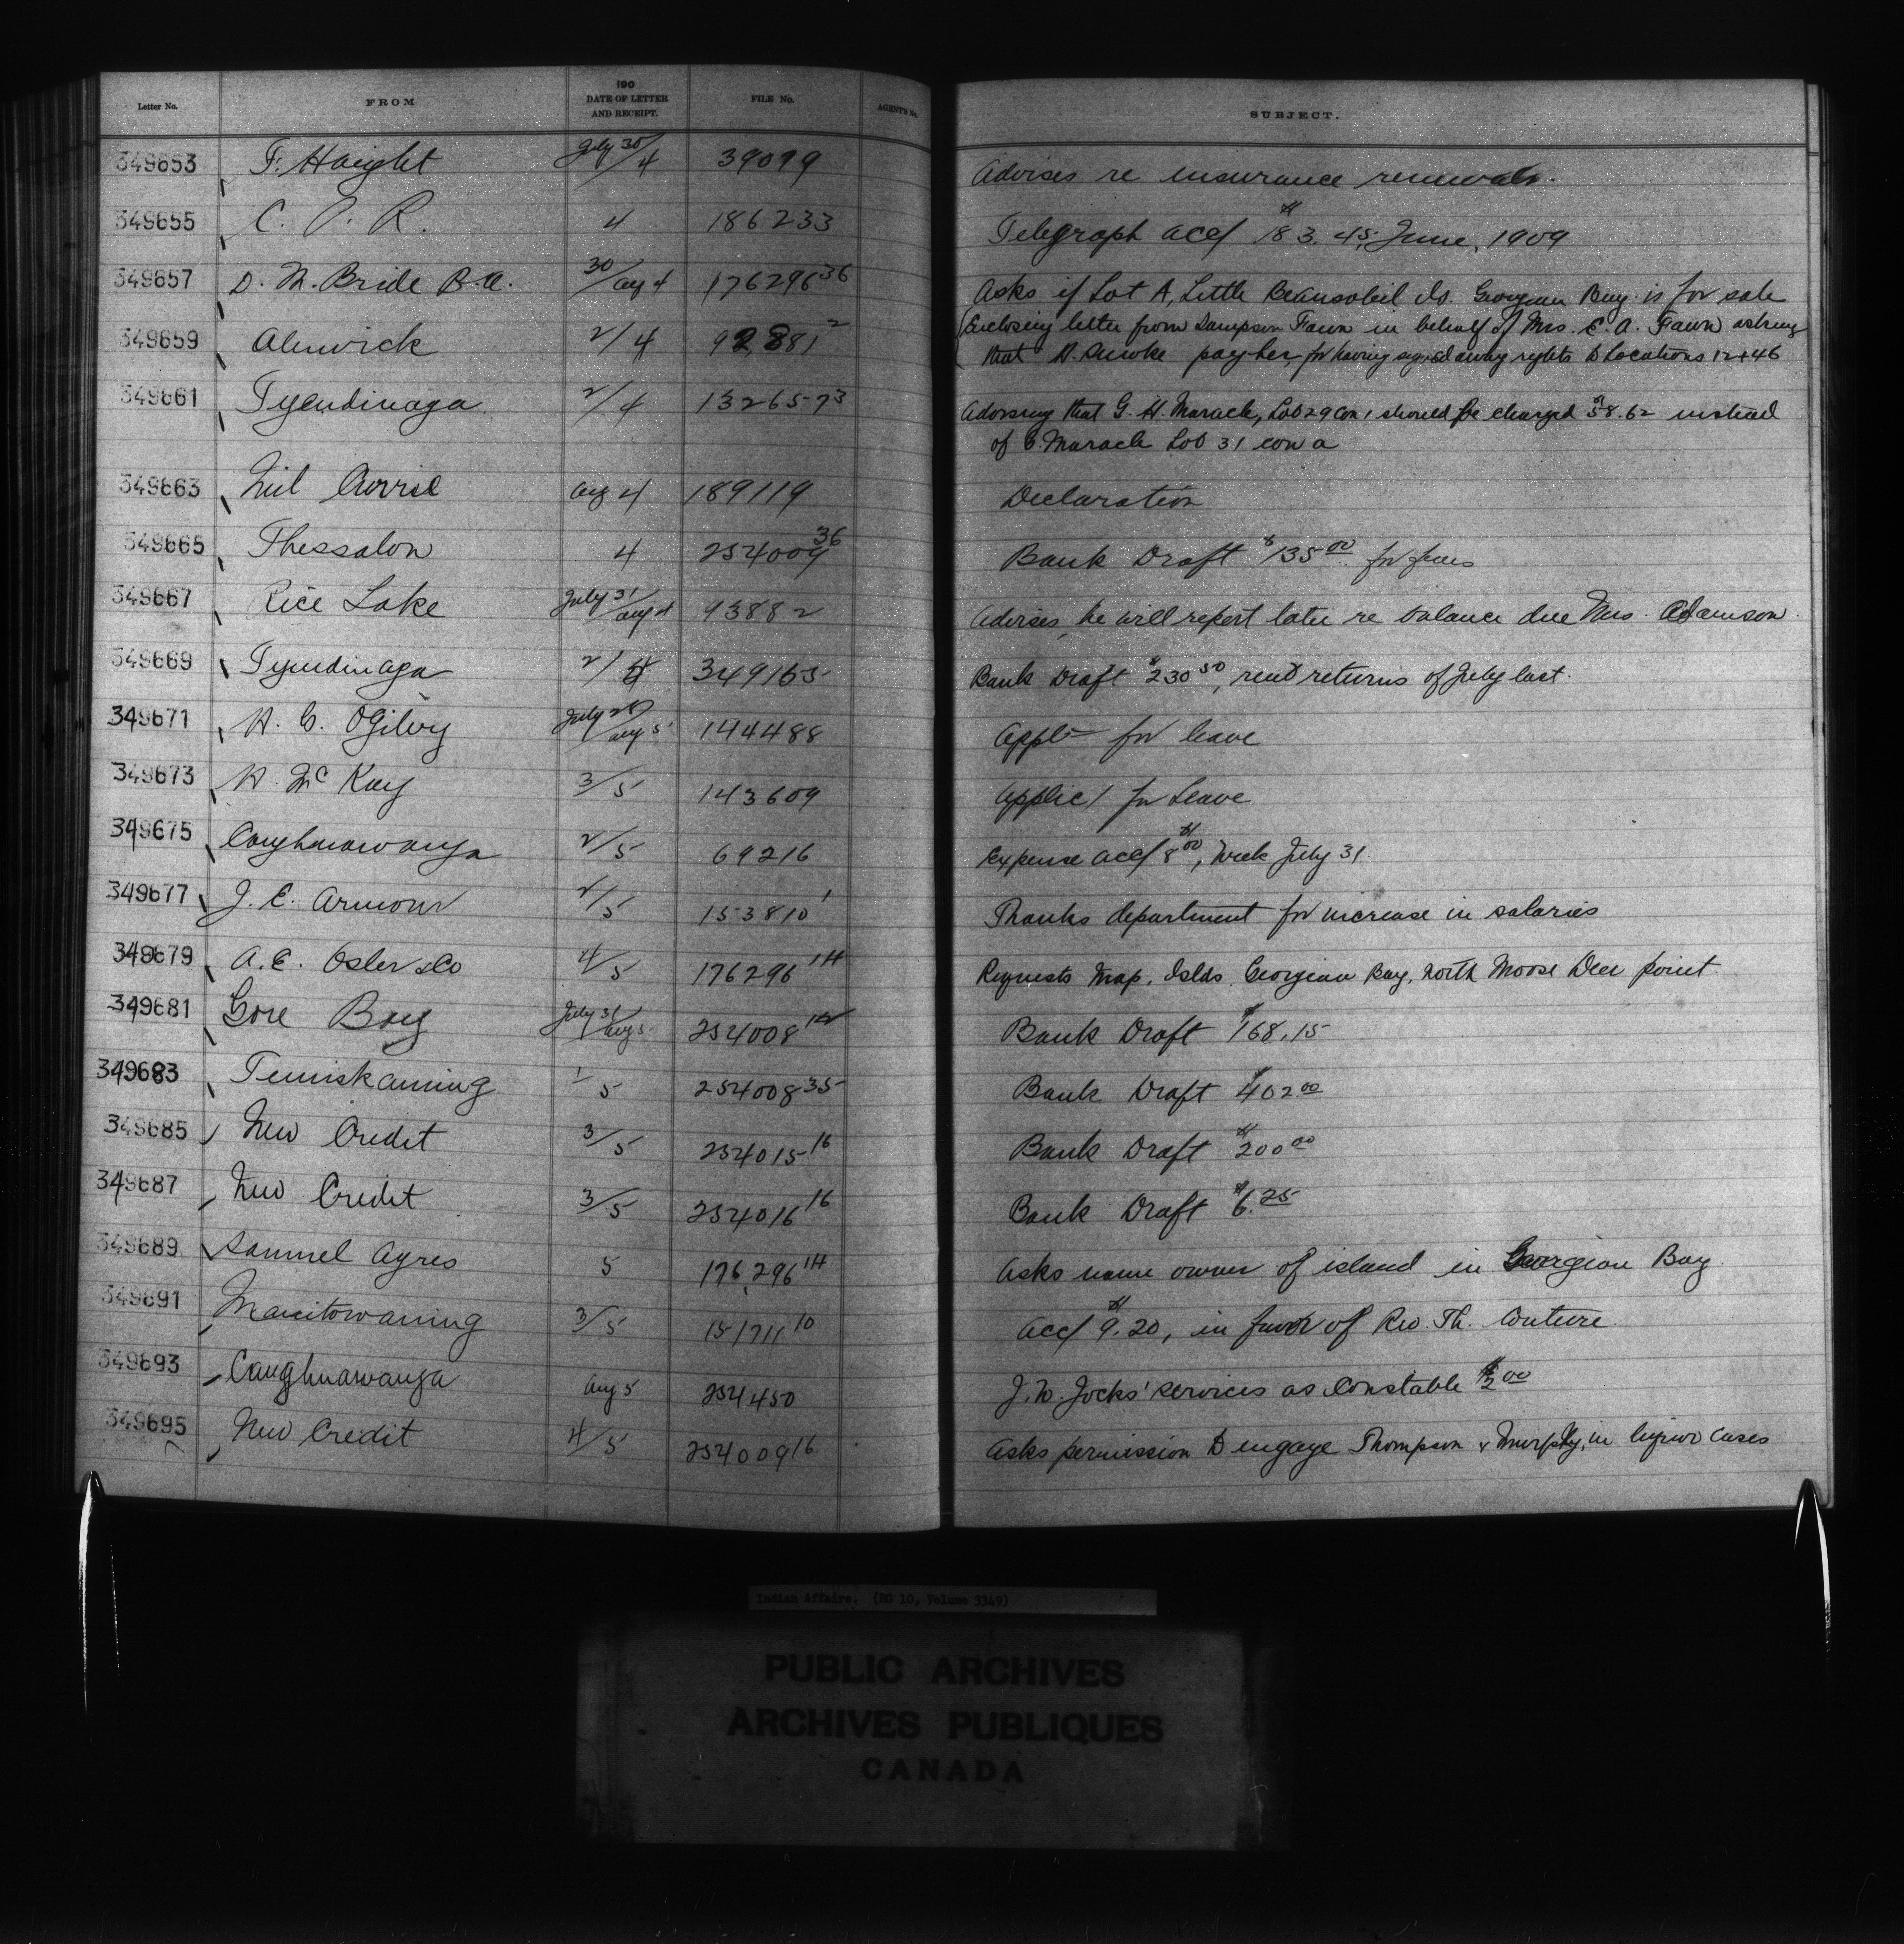 Letter No. FROM 190 DATE OF LETTER AND RECEIPT. FILE No. AGENT'S No. SUBJECT.
349653 F. Haight July 30/4 39099 Advises re insurance renewals.
349655 C. P. R. 4 186233 Telegraph acc/ $183.45, June, 1909
349657 D. M. Bride B.A. 30/Aug 4 176296 36 Asks if Lot A, Little Beausoleil Is. Georgian Bay is for sale
349659 Alnwick 2/4 92881 2 (Enclosing letter from Sampson Fawn in behalf of Mrs. E. A. Fawn asking
that H. Smoke pay her, for having signed away rights to Locations 12 + 46
349661 Tyendinaga 2/4 132657 3 Advising that G. H. Maracle, Lot 29 Con 1 should be charged $58.62 instead
of C. Maracle Lot 31 con a
349663 Neil Currie Aug 4 189119 Declaration
349665 Thessalon 4 254009 36 Bank Draft $135.00 for fines
349667 Rice Lake July 31/Aug 4 93882 Advises, he will report later re balance due Mrs. Adamson
349669 Tyendinaga 2/4 349165 Bank Draft $230 50, rent returns of July last.
349671 W. C. Ogilvy July 28/Aug 5 144488 Appl= for leave
349673 H. McKay 3/5 143609 Applic/ for Leave
349675 Caughnawauga 2/5 69216 Expense acc/ $8 00, Week July 31.
349677 J. E. Armour 2/5 153810 1 Thanks department for increase in salaries
349679 A. E. Osler & Co 4/5 176296 14 Requests Map, Islds. Georgian Bay, North Moose Deer point
349681 Gore Bay July 31/Aug 5 254008 14 Bank Draft $168.15
349683 Temiskaming 1 5 254008 35 Bank Draft $402 00
349685 New Credit 3/5 254015 16 Bank Draft $200 00
349687 New Credit 3/5 254016 16 Bank Draft $6.25
349689 Samuel Ayres 5 176296 14 Asks name owner of island in Georgian Bay
349691 Manitowaning 3/5 151711 10 Acc/ $9.20, in favor of Rev. Th. Couture
349693 Caughnawauga Aug 5 254450 J. W. Jocks' services as Constable $2 00
349695 New Credit 4/5 254009 16 Asks permission to engage Thompson & Murphy, in liquor cases
Indian Affairs. (RG 10, Volume 3349)
PUBLIC ARCHIVES
ARCHIVES PUBLIQUES
CANADA